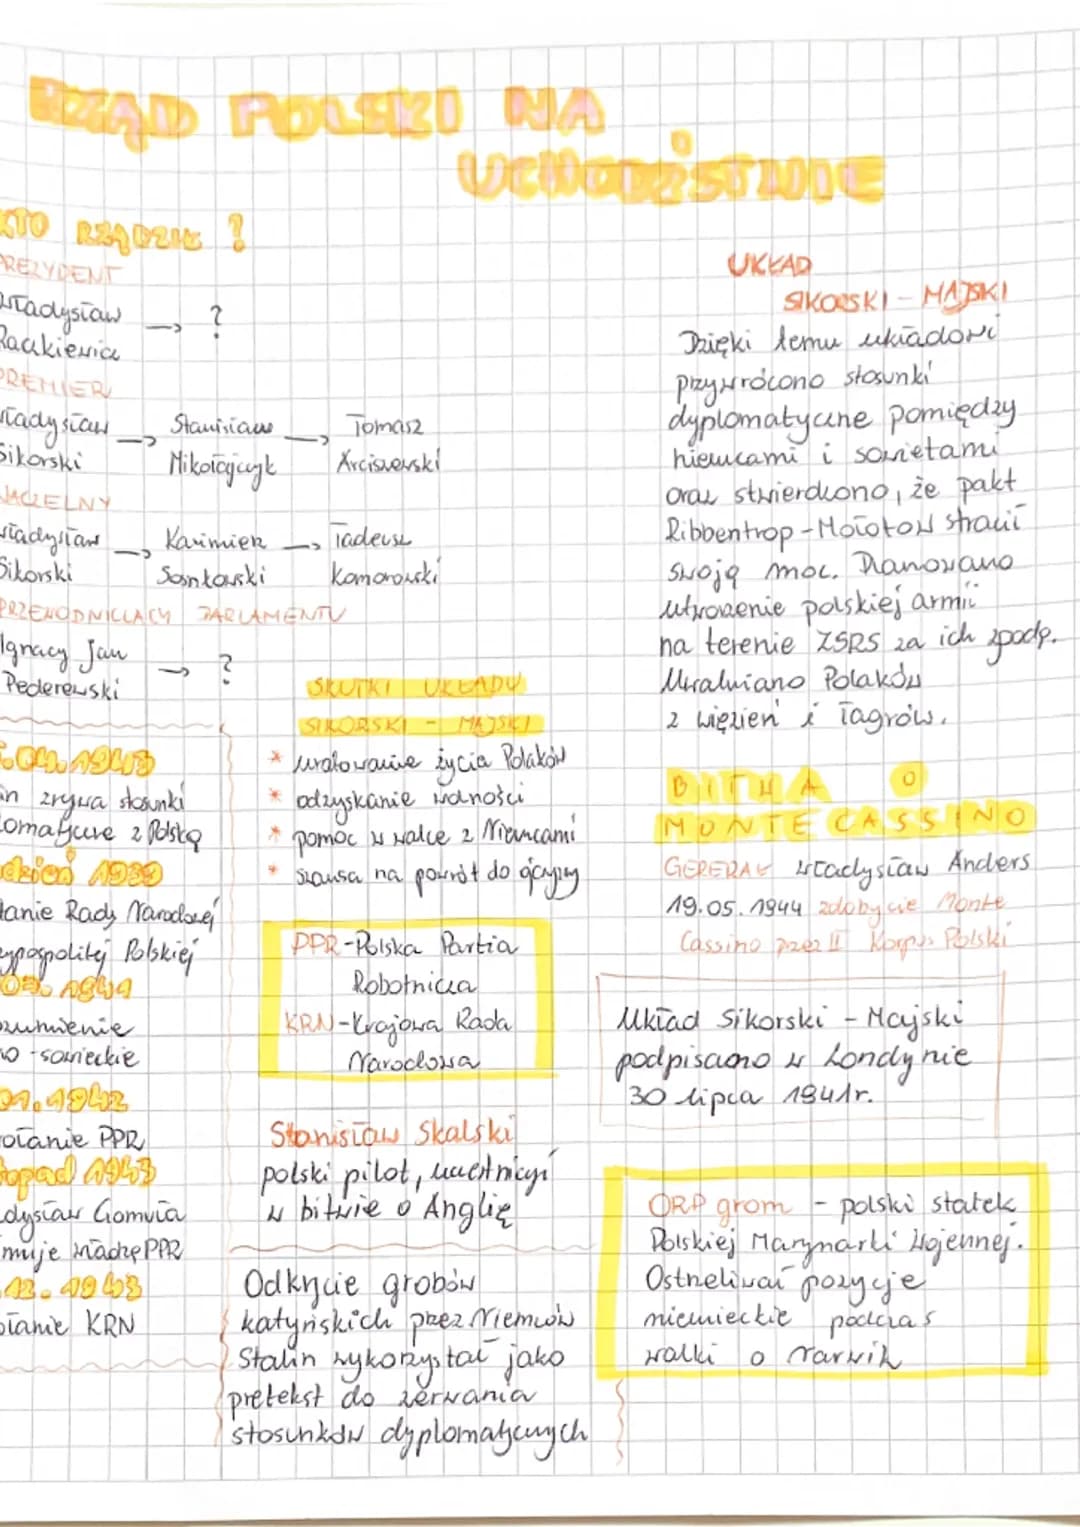 RZĄD POLSKI NA
UCHODŹSTWIE
KTO RZĄDZIŁ ?
PREZYDENT
Władysław → ?
Raczkiewicz
PREMIER
Władysław → Stanisław → Tomasz
Sikorski Mikołajczyk Arciszewski
NACZELNY
Władysław → Kazimierz → Tadeusz
Sikorski Sosnkowski Komorowski
PRZEWODNICZĄCY PARLAMENTU
Ignacy Jan → ?
Pederewski
.04.1943
in zrywa stosunki
lomatyczne z Polską
dzień 1939
łanie Rady Narodowej
zypospolitej Polskiej
07.1941
zumienie
o-sowieckie
01.1942
ołanie PPR
topad 1943
dysław Gomułka
muje władzę PPR
.12.1943
ołanie KRN
SKUTKI UKŁADU
SIKORSKI - MAJSKI
* uratowanie życia Polaków
* odzyskanie wolności
* pomoc w walce z Niemcami
* szansa na powrót do ojczyzny
PPR-Polska Partia
Robotnicza
KRN-Krajowa Rada
Narodowa
Stanisław Skalski
polski pilot, uczestniczył
w bitwie o Anglię
Odkrycie grobów
katyńskich przez Niemców
Stalin wykorzystał jako
pretekst do zerwania
stosunków dyplomatycznych
UKŁAD
SIKORSKI - MAJSKI
Dzięki temu układowi
przywrócono stosunki
dyplomatyczne pomiędzy
niemcami i sowietami
oraz stwierdzono, że pakt
Ribbentrop-Mołotow stracił
swoją moc. Planowano
utworzenie polskiej armii
na terenie ZSRS za ich zgodą.
Uwalniano Polaków
z więzień i łagrów.
BITWA O
MONTE CASSINO
GENERAŁ Władysław Anders
19.05.1944 zdobycie Monte
Cassino przez II Korpus Polski
Układ Sikorski - Majski
podpisano w Londynie
30 lipca 1941r.
ORP grom - polski statek
Polskiej Marynarki Wojennej.
Ostrzeliwał pozycje
niemieckie podczas
walki o narwik